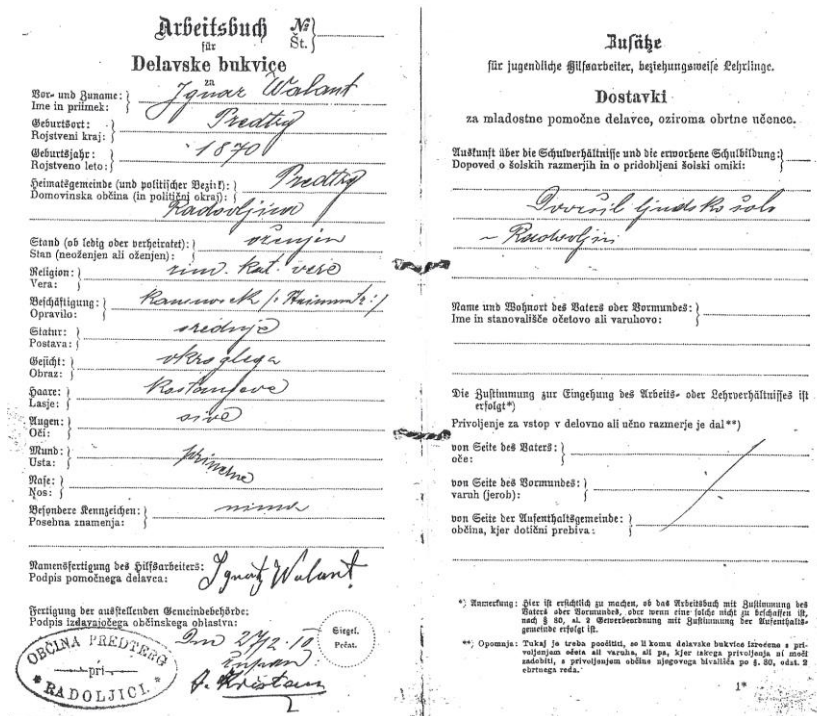 Arbeitsbuch № 
für Št.
Delavske bukvice
za
Vor- und Zuname: Ignac Walant
Ime in priimek:
Geburtsort: Predtrg
Rojstveni kraj:
Geburtsjahr: 1870
Rojstveno leto:
Heimatsgemeinde (und politischer Bezirk): Predtrg
Domovinska občina (in politični okraj):
Radovljica
Stand (ob ledig oder verheiratet): oženjen
Stan (neoženjen ali oženjen):
Religion: rim. kat. vere
Vera:
Beschäftigung: Kamnosek
Opravilo:
Statur: srednje
Postava:
Gesicht: okroglega
Obraz:
Haare: Kostanjeve
Lasje:
Augen: sive
Oči:
Mund: primerne
Usta:
Nase:
Nos:
Besondere Kennzeichen: nima
Posebna znamenja:
Namensfertigung des Hilfsarbeiters: Ignatz Walant
Podpis pomočnega delavca:
Fertigung der ausstellenden Gemeindebehörde:
Podpis izdavajočega občinskega oblastva:
Dne 27/2. 10
Siegel.
Pečat.
župan
OBČINA PREDTERG
pri
RADOLJICI.
Zusätze
für jugendliche Hilfsarbeiter, beziehungsweise Lehrlinge.
Dostavki
za mladostne pomočne delavce, oziroma obrtne učence.
Auskunft über die Schulverhältnisse und die erworbene Schulbildung:
Dopoved o šolskih razmerjih in o pridobljeni šolski omiki:
Dovršil ljudsko šolo
v Radovljici
Name und Wohnort des Vaters oder Vormundes:
Ime in stanovališče očetovo ali varuhovo:
Die Zustimmung zur Eingehung des Arbeits- oder Lehrverhältnisses ist
erfolgt*)
Privoljenje za vstop v delovno ali učno razmerje je dal**)
von Seite des Vaters:
oče:
von Seite des Vormundes:
varuh (jerob):
von Seite der Aufenthaltsgemeinde:
občina, kjer dotični prebiva:
*) Anmerkung: Hier ist ersichtlich zu machen, ob das Arbeitsbuch mit Zustimmung des
Vaters oder Vormundes, oder wenn eine solche nicht zu beschaffen ist,
nach § 80, al. 2 Gewerbeordnung mit Zustimmung der Aufenthalts-
gemeinde erfolgt ist.
**) Opomnja: Tukaj je treba poočititi, se li komu delavske bukvice izrečeno s pri-
voljenjem očeta ali varuha, ali pa, kjer takega privoljenja ni moči
zadobiti, s privoljenjem občine njegovega bivališča po § 80, odst. 2
obrtnega reda.
1*